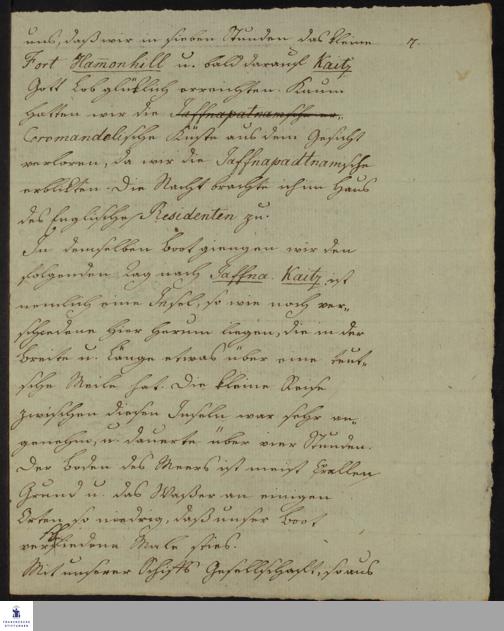 uns, daß wir in sieben Stunden das kleine
7.
Fort Ham̅onhill u. bald darauf Kaitz
Gott lob glüklich erreichten. Kaum
hatten wir die Jaffnapatnamsche
Coromandelsche Küste aus dem Gesicht
verloren, da wir die Jaffnapadtnamsche
erblikten. Die Nacht brachte ich im Haus
des Englischen Residenten zu.
In demselben Boot giengen wir den
folgenden Tag nach Jaffna. Kaitz ist
nemlich eine Insel, so wie noch ver-
schiedene hier herum liegen, die in der
Breite u. Länge etwas über eine teut-
sche Meile hat. Die kleine Reise
zwischen diesen Inseln war sehr an-
genehm, u. dauerte über vier Stunden.
Der Boden des Meers ist meist Corallen
Grund u. das Waßer an einigen
Orten so niedrig, daß unser Boot
verschiedene Male sties.
Mit unserer Schiffs Gesellschaft, so aus
FRANCKESCHE STIFTUNGEN